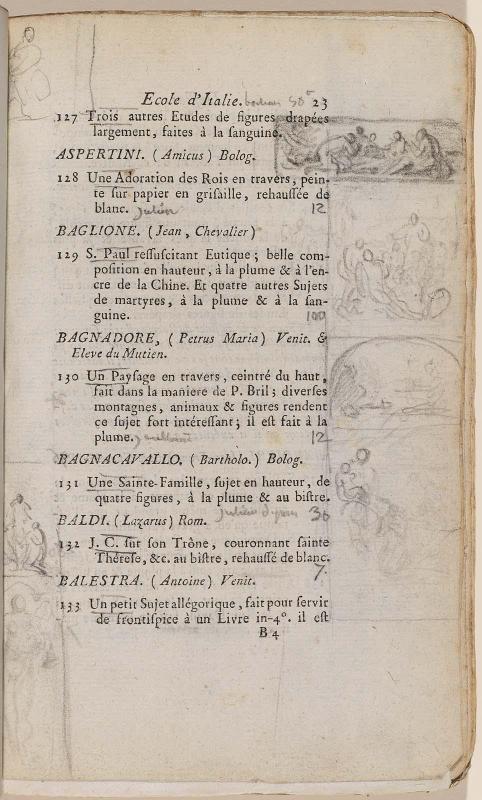 Ecole d'Italie. 50 23
127 Trois autres Etudes de figures drapées
largement, faites à la sanguine.
ASPERTINI. (Amicus) Bolog.
128 Une Adoration des Rois en travers, pein-
te sur papier en grisaille, rehaussée de
blanc. Julien 12
BAGLIONE. (Jean, Chevalier)
129 S. Paul ressuscitant Eutique; belle com-
position en hauteur, à la plume & à l'en-
cre de la Chine. Et quatre autres Sujets
de martyres, à la plume & à la san-
guine. 100
BAGNADORE, (Petrus Maria) Venit. &
Eleve du Mutien.
130 Un Paysage en travers, ceintré du haut,
fait dans la maniere de P. Bril; diverses
montagnes, animaux & figures rendent
ce sujet fort intéressant; il est fait à la
plume. 12
BAGNACAVALLO. (Bartholo.) Bolog.
131 Une Sainte-Famille, sujet en hauteur, de
quatre figures, à la plume & au bistre.
BALDI. (Lazarus) Rom. Julien 30
132 J. C. sur son Trône, couronnant sainte
Thérese, &c. au bistre, rehaussé de blanc.
7.
BALESTRA. (Antoine) Venit.
133 Un petit Sujet allégorique, fait pour servir
de frontispice à un Livre in-4°. il est
B 4